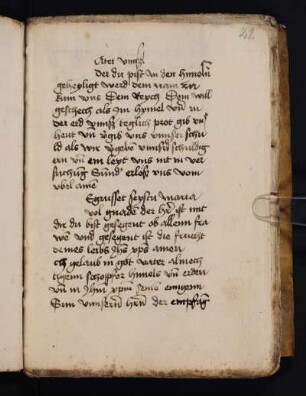 22
Ater vnser
der du pist in den himeln
geheyligt werd dein nam zu
kum vns Dein Reych Dein will
geschech als im hymel vn̄ in
der erd vnnser teglich prot gib vns
heut vn̄ vergib vns vnnser schu
ld als wir vergeben vnnsern schuldig
ern vn̄ ein leyt vns nit in ver
suchung Sunder erloß vns vom
vbel amē
Egrusset seystu maria
vol gnaden der her ist mit
dir du bist gesegent ob allenn fra
wē vnd gesegent ist die frucht
deines leibs Jhs xp̄s amen
Ich gelaub in got vater almech
tigenn schopffer himels vn̄ erden
vn̄ in Jhm xpm sein einigenn
Sun vnnsernn hern der empfāg